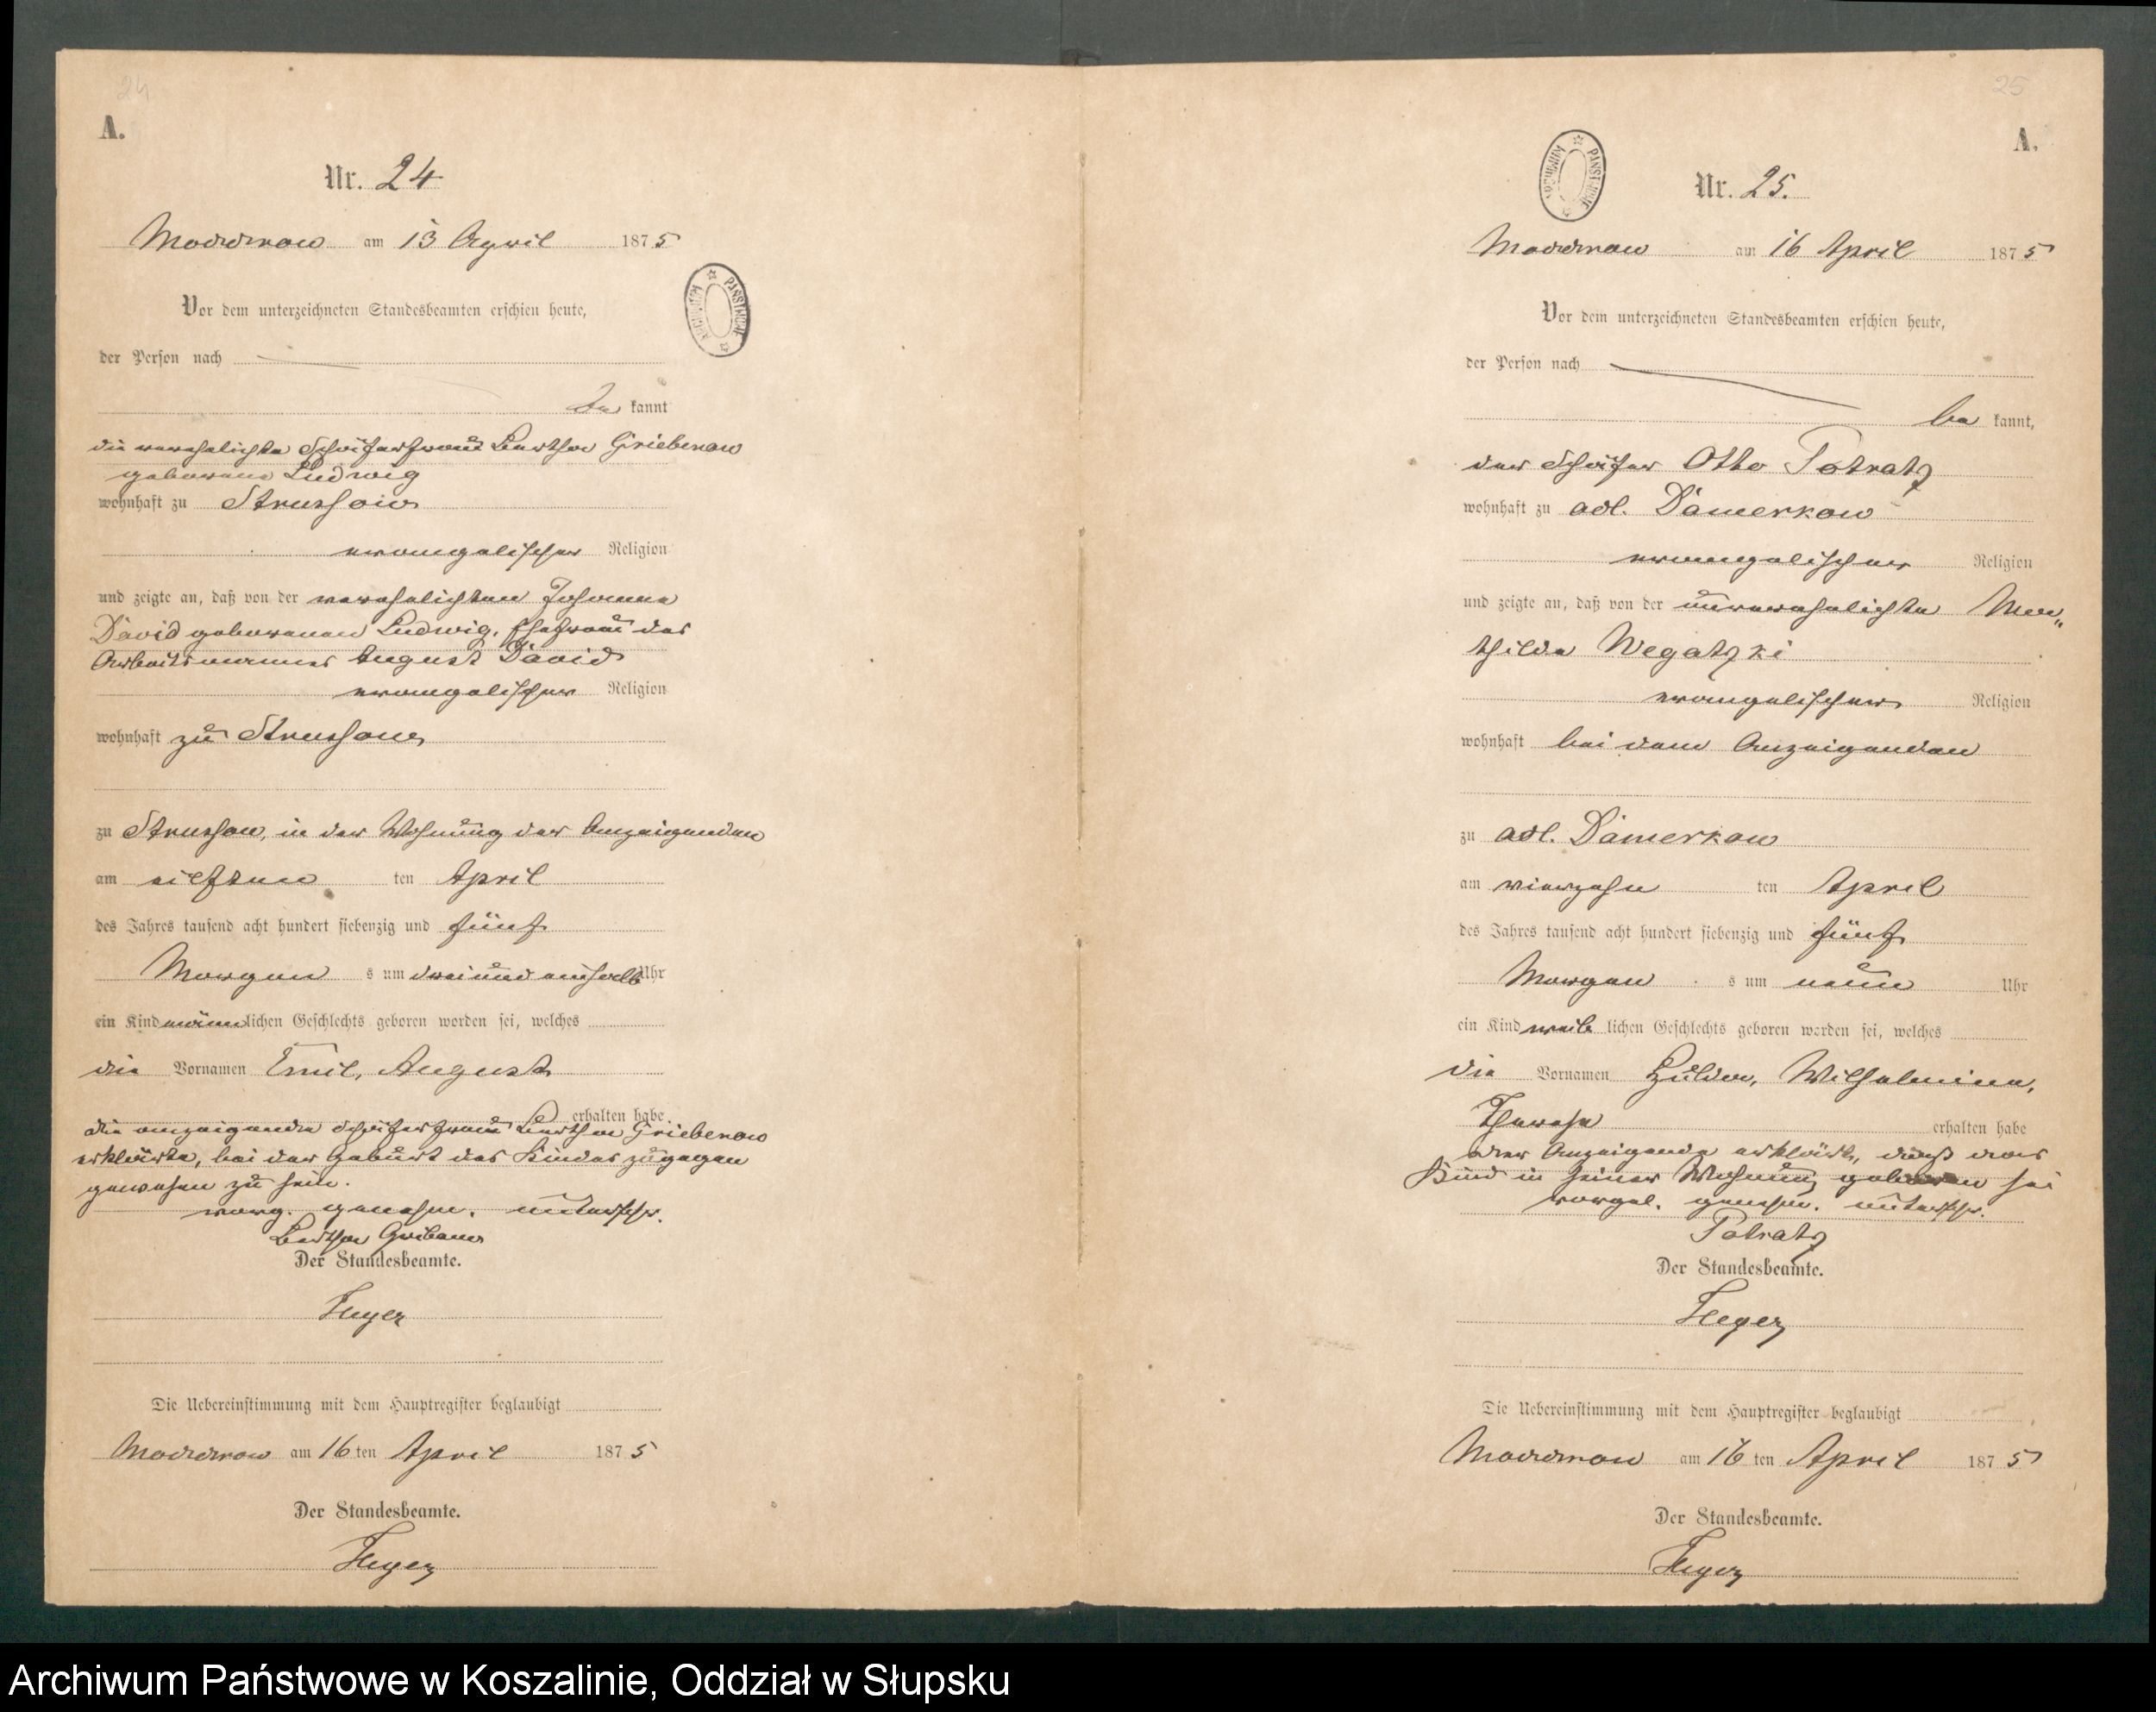 24
A.
Nr. 24
Moddrow am 13 April 1875
Vor dem unterzeichneten Standesbeamten erschien heute,
der Person nach
be kannt
die verehelichte Schäferfrau Bertha Griebenow
geborene Ludwig
wohnhaft zu Strussow
evangelischer Religion
und zeigte an, daß von der verehelichten Johanna
David geborenen Ludwig, Ehefrau des
Arbeitsmannes August David
evangelischer Religion
wohnhaft zu Strussow
zu Strussow, in der Wohnung der Anzeigenden
am eilften ten April
des Jahres tausend acht hundert siebenzig und fünf
Morgen s um drei und einhalb Uhr
ein Kind männlichen Geschlechts geboren worden sei, welches
die Vornamen Emil, August
erhalten habe
die anzeigende Schäferfrau Bertha Griebenow
erklärte, bei der Geburt des Kindes zugegen
gewesen zu sein.
vorg. genehm. unterschr.
Bertha
Der Standesbeamte.
Heyer
Die Uebereinstimmung mit dem Hauptregister beglaubigt
Moddrow am 16 ten April 1875
Der Standesbeamte.
Heyer
25
A.
ARCHIWUM PAŃSTWOWE
Nr. 25.
Moddrow am 16 April 1875
Vor dem unterzeichneten Standesbeamten erschien heute,
der Person nach
be kannt,
der Schäfer Otto Potratz
wohnhaft zu adl. Dämerkow
evangelischer Religion
und zeigte an, daß von der unverehelichte Ma„
thilde Wegatzki
evangelischer Religion
wohnhaft bei dem Anzeigenden
zu adl. Dämerkow
am vierzehn ten April
des Jahres tausend acht hundert siebenzig und fünf
Morgen s um neun Uhr
ein Kind weib lichen Geschlechts geboren worden sei, welches
die Vornamen Hulda, Wilhelmine,
Therese erhalten habe
der Anzeigende erklärte, daß das
Kind in seiner Wohnung geboren sei
vorgel. genehm. unterschr.
Potratz
Der Standesbeamte.
Heyer
Die Uebereinstimmung mit dem Hauptregister beglaubigt
Moddrow am 16 ten April 1875
Der Standesbeamte.
Heyer
Archiwum Państwowe w Koszalinie, Oddział w Słupsku